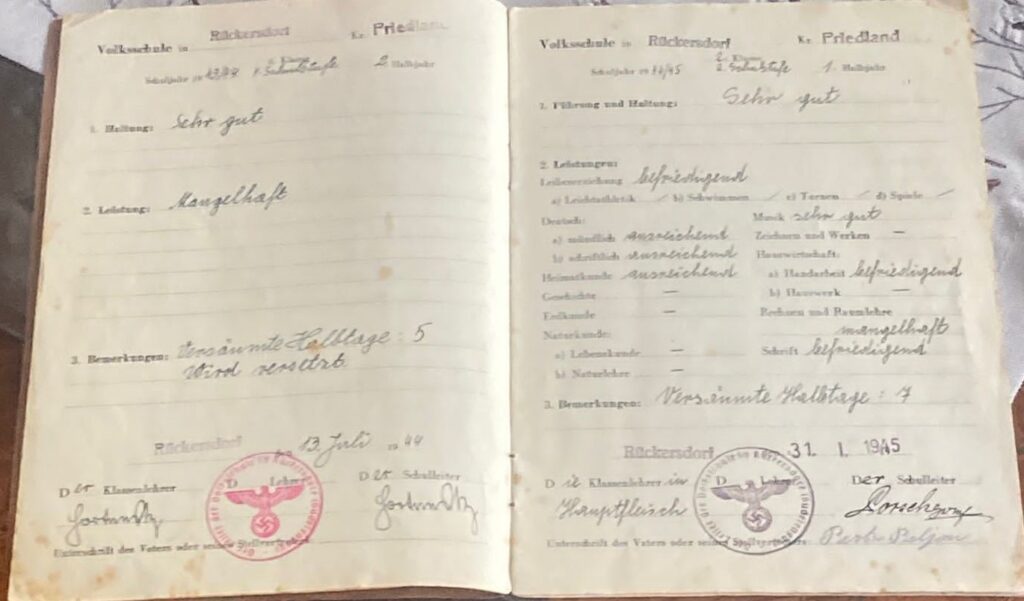 Volksschule in Rückersdorf Kr. Friedland
Schuljahr 1943/44 1. Schulstufe 2. Halbjahr
1. Haltung: Sehr gut
2. Leistung: Mangelhaft
3. Bemerkungen: Versäumte Halbtage: 5
Wird versetzt.
Rückersdorf 13. Juli 1944
Der Klassenlehrer Der Schulleiter
Unterschrift des Vaters oder seines Stellvertreters
Volksschule in Rückersdorf Kr. Friedland
2. Klasse
Schuljahr 1944/45 2. Schulstufe 1. Halbjahr
1. Führung und Haltung: Sehr gut
2. Leistungen:
Leibeserziehung befriedigend
a) Leichtathletik / b) Schwimmen / c) Turnen / d) Spiele /
Deutsch:
a) mündlich ausreichend
b) schriftlich ausreichend
Heimatkunde ausreichend
Geschichte —
Erdkunde —
Naturkunde:
a) Lebenskunde —
b) Naturlehre —
Musik sehr gut
Zeichnen und Werken —
Hauswirtschaft:
a) Handarbeit befriedigend
b) Hauswerk —
Rechnen und Raumlehre
mangelhaft
Schrift befriedigend
3. Bemerkungen: Versäumte Halbtage: 7
Rückersdorf 31. 1. 1945
Die Klassenlehrerin Der Schulleiter
Hauptfleisch
Unterschrift des Vaters oder seines Stellvertreters: